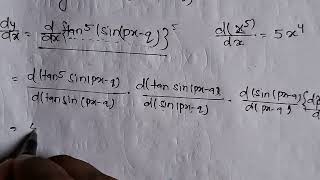 dy/dx = d/dx {tan⁵(sin(px-q)}⁵ d(x⁵)/dx = 5x⁴
= d(tan⁵ sin(px-q)/d(tan sin(px-q) · d(tan sin(px-q)/d(sin(px-q) · d(sin(px-q)/d(px-q)
=